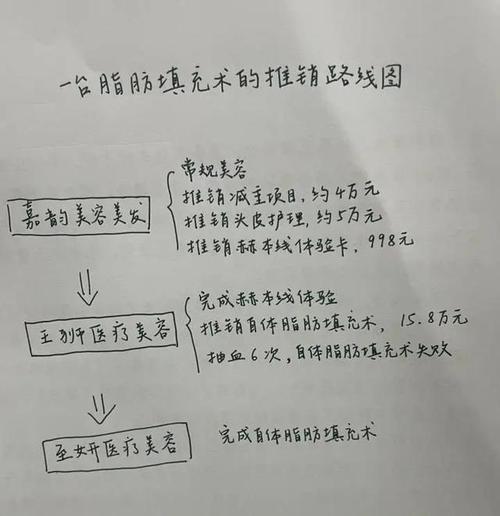 一台脂肪填充术的推销路线图
常规美容
推销减主项目，约4万元
嘉韵美容美发
推销头皮护理，约5万元
推销赫本线体验卡，998元
完成赫本线体验
医疗美容
推销自体脂肪填充术，15.8万元
抽血6次，自体脂肪填充术失败
至妍医疗美容
完成自体脂肪填充术